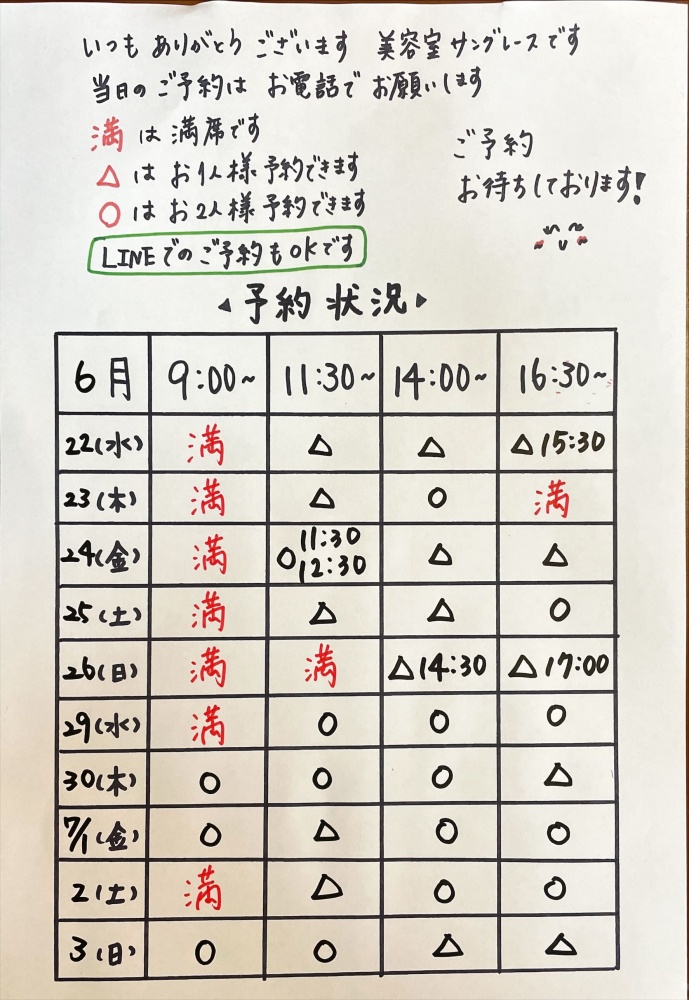 いつも ありがとう ございます 美容室 サングレースです
当日の ご予約は お電話で お願いします
満 は 満席です
△ は お1人様 予約できます
○ は お2人様 予約できます
LINEでの ご予約も OKです
ご予約
お待ちしております!
予約 状況
6月 9:00~ 11:30~ 14:00~ 16:30~
22(水) 満 △ △ △15:30
23(木) 満 △ ○ 満
24(金) 満 ○11:30 12:30 △ △
25(土) 満 △ △ ○
26(日) 満 満 △14:30 △17:00
29(水) 満 ○ ○ ○
30(木) ○ ○ ○ △
7/1(金) ○ △ ○ ○
2(土) 満 △ ○ ○
3(日) ○ ○ △ △